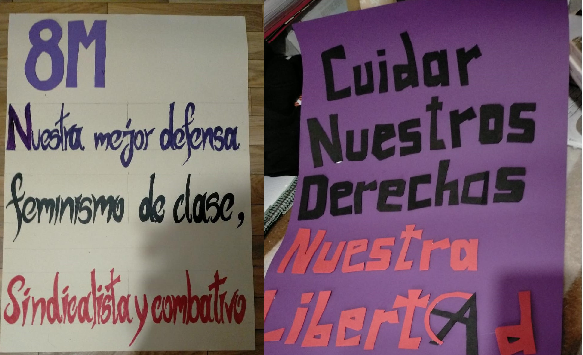 8M
Nuestra mejor defensa
feminismo de clase,
Sindicalista y combativo
Cuidar
Nuestros
Derechos
Nuestra
Libertad